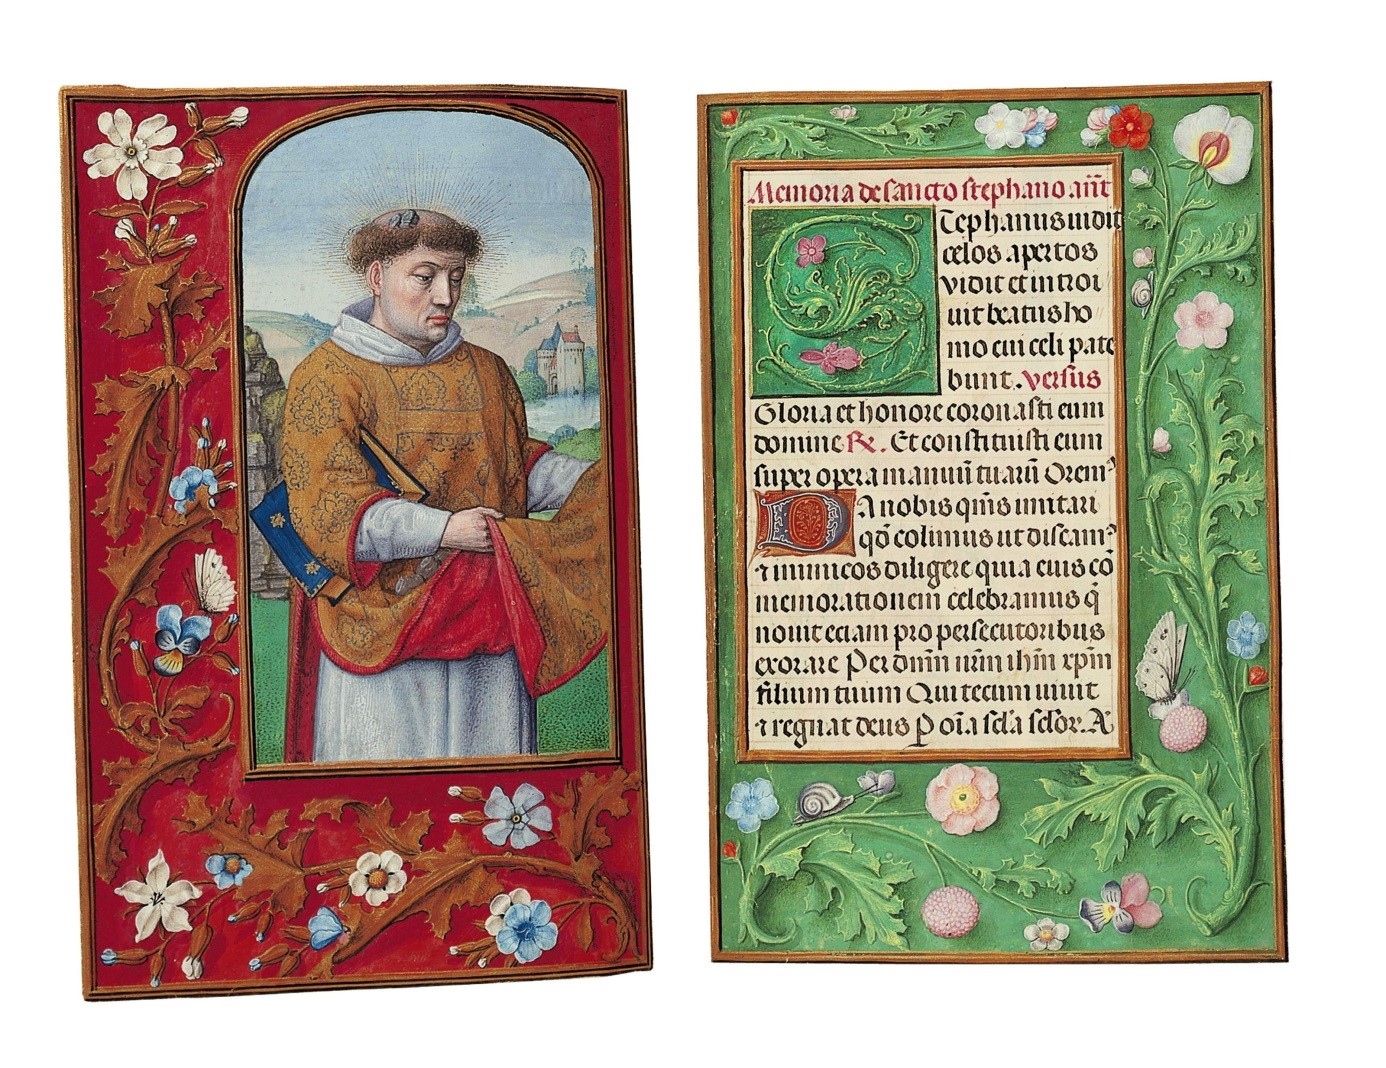 Memoria de sancto stephano añt
Stephanus uidit
celos apertos
vidit et introi
uit beatus ho
mo cui celi pate
bunt. versus
Gloria et honore coronasti eum
domine R. Et constituisti eum
super opera manuũ tuarũ Orem⁹
Da nobis qms imitari
qđ colimus ut discam⁹
⁊ inimicos diligere quia eius cõ
memorationem celebramus q̃
nouit eciam pro persecutoribus
exorare Per dñm nrm ihm xpm
filium tuum Qui tecum uiuit
⁊ regnat deus P oĩa scła scłor. A